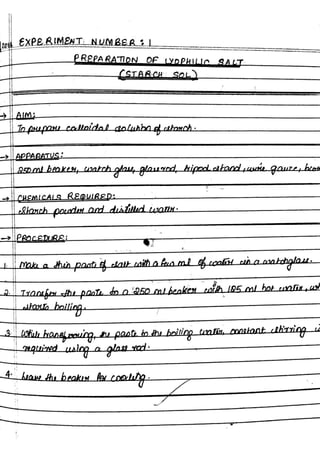 EXPERIMENT NUMBER : 1
PREPARATION OF LYOPHILIC SALT
(STARCH SOL)
→ AIM:
To prepare colloidal solution of starch.
→ APPARATUS:
250 ml beaker, watch glass, glass rod, tripod stand, wire gauze,
→ CHEMICALS REQUIRED:
Starch powder and distilled water.
→ PROCEDURE:
1. Make a thin paste of salt with a few ml of water in a watchglass.
2. Transfer the paste to a 250 ml beaker with 125 ml hot water,
starts boiling.
3. While transferring, the paste to the boiling water, constant stirring is
required using a glass rod.
4. Leave the beaker for cooling.